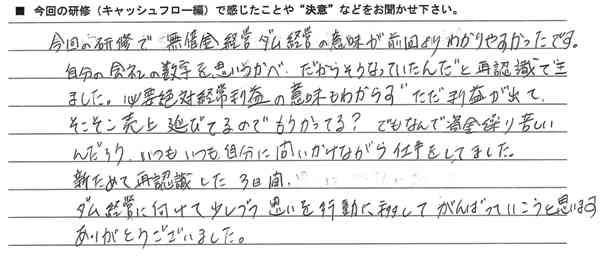 ■ 今回の研修（キャッシュフロー編）で感じたことや“決意”などをお聞かせ下さい。
今回の研修で 無借金経営 ダム経営の意味が前回よりわかりやすかったです。
自分の会社の数字を思いうかべ、だからそうなっていたんだと再認識でき
ました。必要絶対経常利益の意味もわからず ただ利益が出て、
そこそこ売上 延びてるのでもうかってる？ でもなんで資金繰り苦しい
んだろう、いつもいつも自分に問いかけながら仕事をしてました。
新ためて再認識した3日間、
ダム経営に向けて少しづつ 思いを行動に移して がんばっていこうと思います
ありがとうございました。